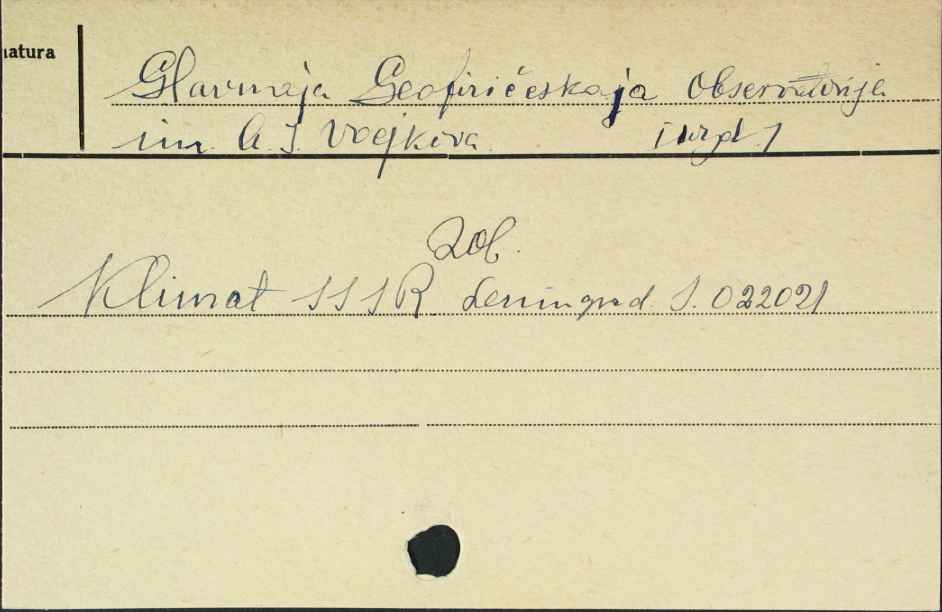 natura
Glavnaja Geofizičeskaja Observatorija
im. A. I. Voejkova. [wyd.]
Zob.
Klimat SSSR Leningrad. S. 022021